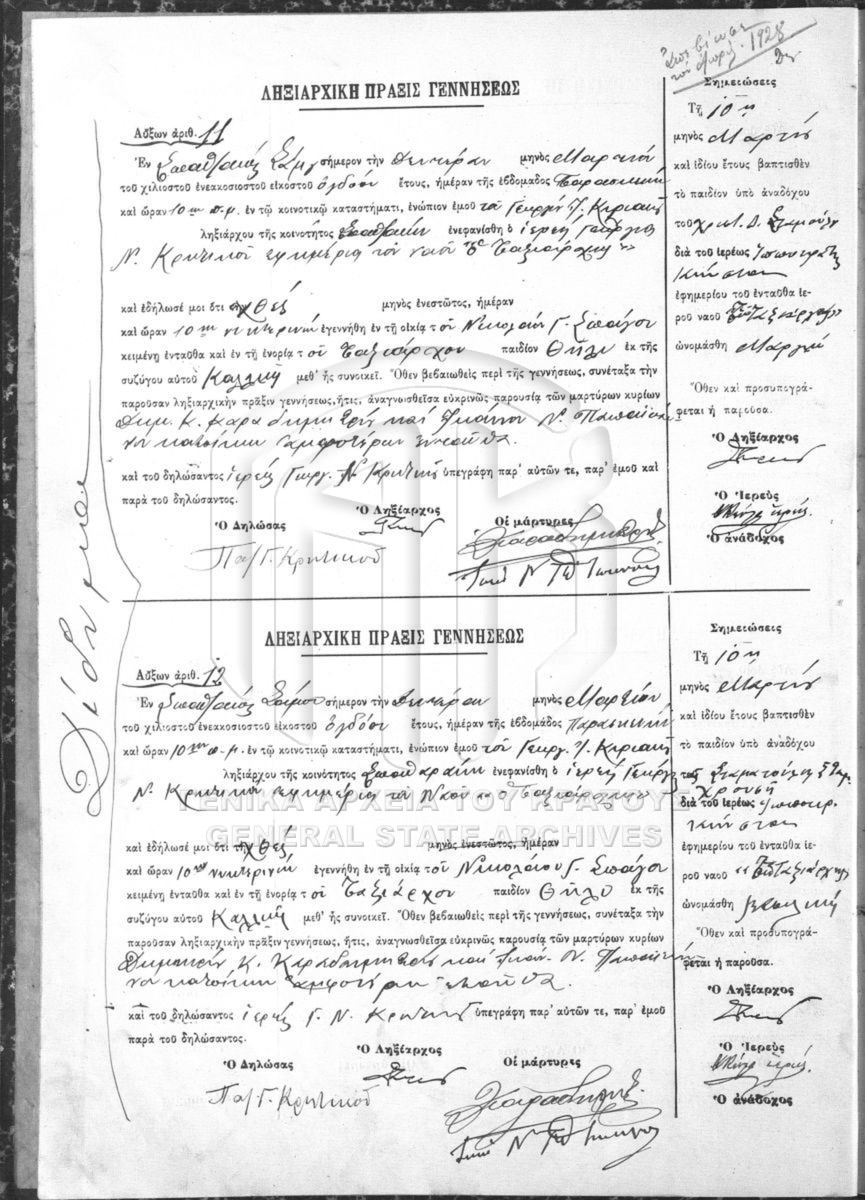 1928
ΛΗΞΙΑΡΧΙΚΗ ΠΡΑΞΙΣ ΓΕΝΝΗΣΕΩΣ
Αὔξων ἀριθ. 11
Ἐν Σπαθαραίοις Σάμου σήμερον τὴν Δευτέραν μηνὸς Μαρτίου
τοῦ χιλιοστοῦ ἐνεακοσιοστοῦ εἰκοστοῦ ὀγδόου ἔτους, ἡμέραν τῆς ἑβδομάδος Παρασκευὴν
καὶ ὥραν 10ην π.μ. ἐν τῷ κοινοτικῷ καταστήματι, ἐνώπιον ἐμοῦ τοῦ Γεωργ.
ληξιάρχου τῆς κοινότητος Σπαθαραίων ἐνεφανίσθη ὁ ἱερεὺς Γεώργιος
Ν. Κρητικοῦ ἐφημέριος τοῦ ναοῦ Ταξιάρχης»
καὶ ἐδήλωσέ μοι ὅτι χθὲς μηνὸς ἐνεστῶτος, ἡμέραν
καὶ ὥραν 10ην νυκτερινὴν ἐγεννήθη ἐν τῇ οἰκίᾳ τοῦ Νικολάου Γ.
κειμένῃ ἐνταῦθα καὶ ἐν τῇ ἐνορίᾳ τοῦ Ταξιάρχου παιδίον Θῆλυ ἐκ τῆς
συζύγου αὐτοῦ μεθ' ἧς συνοικεῖ. Ὅθεν βεβαιωθεὶς περὶ τῆς γεννήσεως, συνέταξα τὴν
παροῦσαν ληξιαρχικὴν πρᾶξιν γεννήσεως, ἥτις, ἀναγνωσθεῖσα εὐκρινῶς παρουσίᾳ τῶν μαρτύρων κυρίων
Δημ. Κ. Καραδημητρῆ καὶ Ἰωάννου Ν.
κατοίκων ἀμφοτέρων ἐνταῦθα.
καὶ τοῦ δηλώσαντος ἱερεὺς Γεωργ. Ν. Κρητικὸς ὑπεγράφη παρ' αὐτῶν τε, παρ' ἐμοῦ καὶ
παρὰ τοῦ δηλώσαντος.
Ὁ Δηλώσας Ὁ Ληξίαρχος Οἱ μάρτυρες
Πα/Γ. Κρητικοῦ
Σημειώσεις
Τῇ 10ῃ
μηνὸς Μαρτίου
καὶ ἰδίου ἔτους βαπτισθὲν
τὸ παιδίον ὑπὸ ἀναδόχου
τοῦ Χριστ. Δ. Σταμούλη
διὰ τοῦ ἱερέως
ἐφημερίου τοῦ ἐνταῦθα ἱε-
ροῦ ναοῦ
ὠνομάσθη
Ὅθεν καὶ προσυπογρά-
φεται ἡ παροῦσα.
Ὁ Ληξίαρχος
Ὁ Ἱερεὺς
Ὁ ἀνάδοχος
Δίδυμαι
ΛΗΞΙΑΡΧΙΚΗ ΠΡΑΞΙΣ ΓΕΝΝΗΣΕΩΣ
Αὔξων ἀριθ. 12
Ἐν Σπαθαραίοις Σάμου σήμερον τὴν Δευτέραν μηνὸς Μαρτίου
τοῦ χιλιοστοῦ ἐνεακοσιοστοῦ εἰκοστοῦ ὀγδόου ἔτους, ἡμέραν τῆς ἑβδομάδος Παρασκευὴν
καὶ ὥραν 10ην π.μ. ἐν τῷ κοινοτικῷ καταστήματι, ἐνώπιον ἐμοῦ τοῦ Γεωργ.
ληξιάρχου τῆς κοινότητος Σπαθαραίων ἐνεφανίσθη ὁ ἱερεὺς Γεώργ.
Ν. Κρητικοῦ ἐφημέριος τοῦ Ναοῦ «ὁ Ταξιάρχης»
καὶ ἐδήλωσέ μοι ὅτι χθὲς μηνὸς ἐνεστῶτος, ἡμέραν
καὶ ὥραν 10ην νυκτερινὴν ἐγεννήθη ἐν τῇ οἰκίᾳ τοῦ Νικολάου Γ.
κειμένῃ ἐνταῦθα καὶ ἐν τῇ ἐνορίᾳ τοῦ Ταξιάρχου παιδίον Θῆλυ ἐκ τῆς
συζύγου αὐτοῦ μεθ' ἧς συνοικεῖ. Ὅθεν βεβαιωθεὶς περὶ τῆς γεννήσεως, συνέταξα τὴν
παροῦσαν ληξιαρχικὴν πρᾶξιν γεννήσεως, ἥτις, ἀναγνωσθεῖσα εὐκρινῶς παρουσίᾳ τῶν μαρτύρων κυρίων
Κ. καὶ Ἰωάν. Ν.
κατοίκων ἀμφοτέρων ἐνταῦθα.
καὶ τοῦ δηλώσαντος ἱερεὺς Γ. Ν. Κρητικὸς ὑπεγράφη παρ' αὐτῶν τε, παρ' ἐμοῦ
παρὰ τοῦ δηλώσαντος.
Ὁ Δηλώσας Ὁ Ληξίαρχος Οἱ μάρτυρες
Πα/Γ. Κρητικοῦ
Σημειώσεις
Τῇ 10ῃ
μηνὸς Μαρτίου
καὶ ἰδίου ἔτους βαπτισθὲν
τὸ παιδίον ὑπὸ ἀναδόχου
διὰ τοῦ ἱερέως
ἐφημερίου τοῦ ἐνταῦθα ἱε-
ροῦ ναοῦ
ὠνομάσθη
Ὅθεν καὶ προσυπογρά-
φεται ἡ παροῦσα.
Ὁ Ληξίαρχος
Ὁ Ἱερεὺς
Ὁ ἀνάδοχος
ΓΕΝΙΚΑ ΑΡΧΕΙΑ ΤΟΥ ΚΡΑΤΟΥΣ
GENERAL STATE ARCHIVES